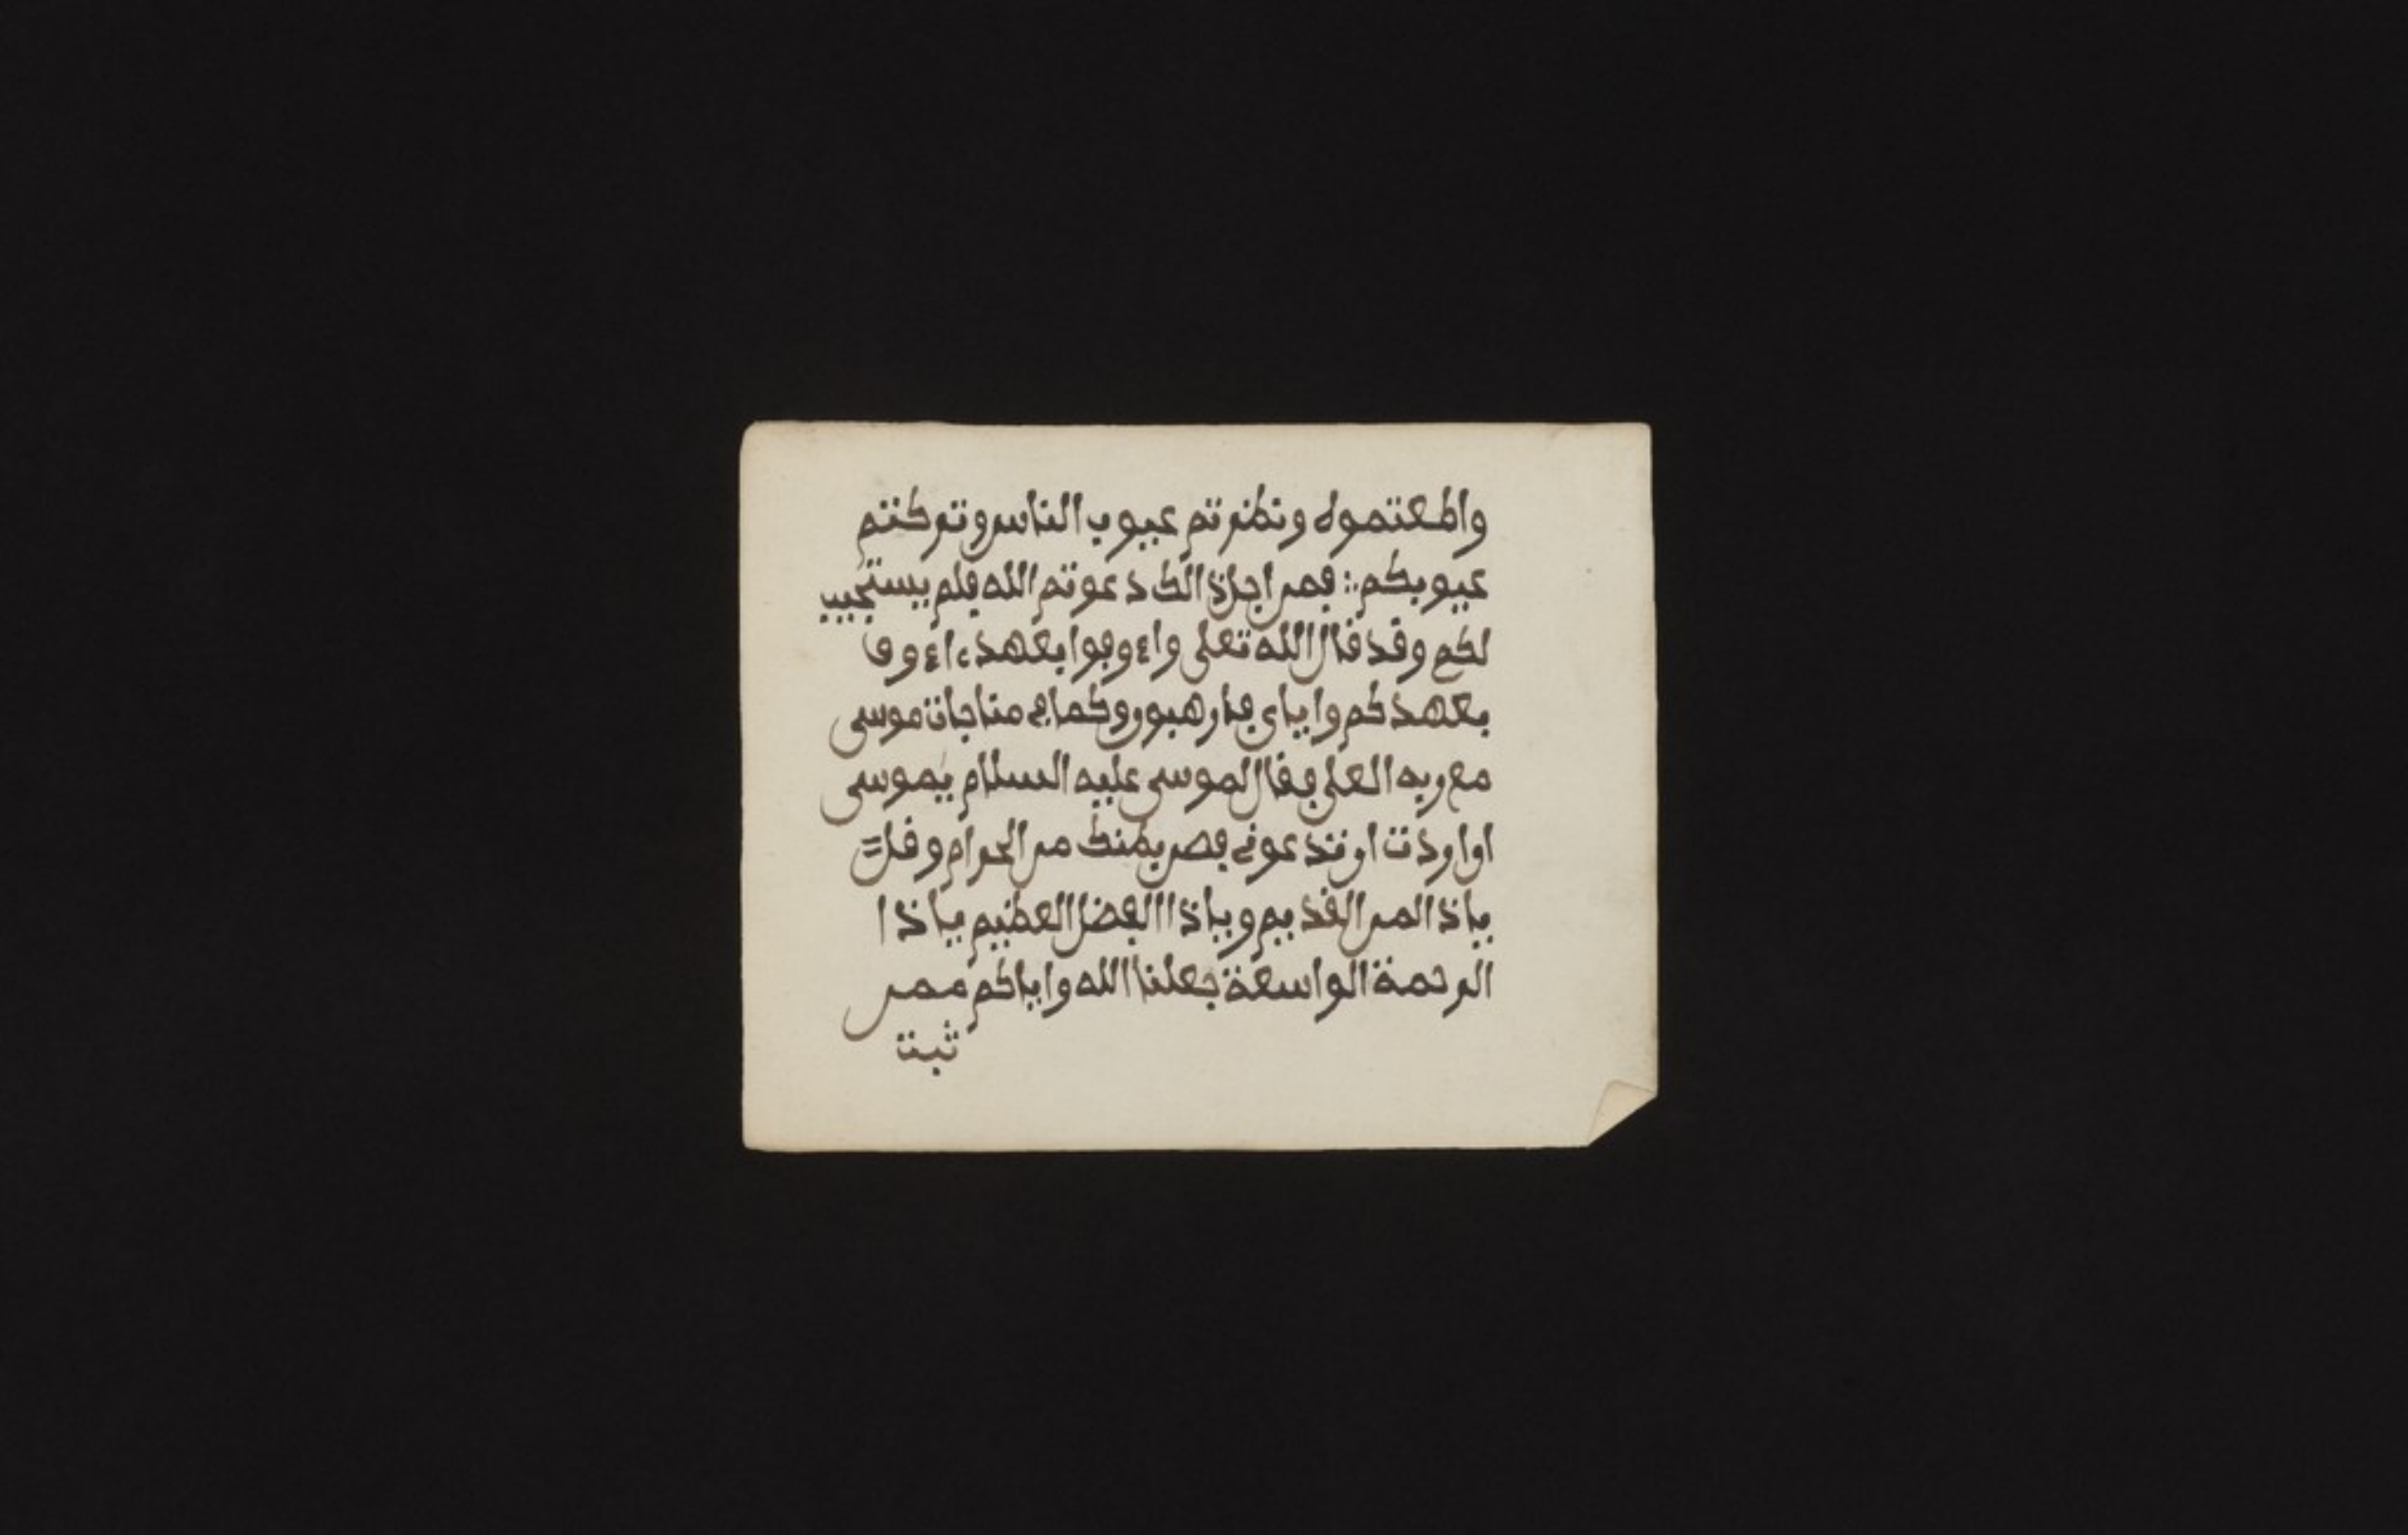 واطعتموه ونظرتم عيوب الناس وتركتم
عيوبكم ∴ فمن اجل ذالك دعوتم الله فلم يستجيب
لكم وقد قال الله تعلى واءوفوا بعهدء اءوف
بعهدكم واياي فارهبون وكما في مناجات موسى
مع ربه العلي فقال لموسى عليه السلام يموسى
اوا ردت ان تدعوني فصن بطنك من الحرام وقل =
ياذ المن القديم وياذا الفضل العظيم ياذا
الرحمة الواسعة جعلنا الله واياكم ممن
ثبت